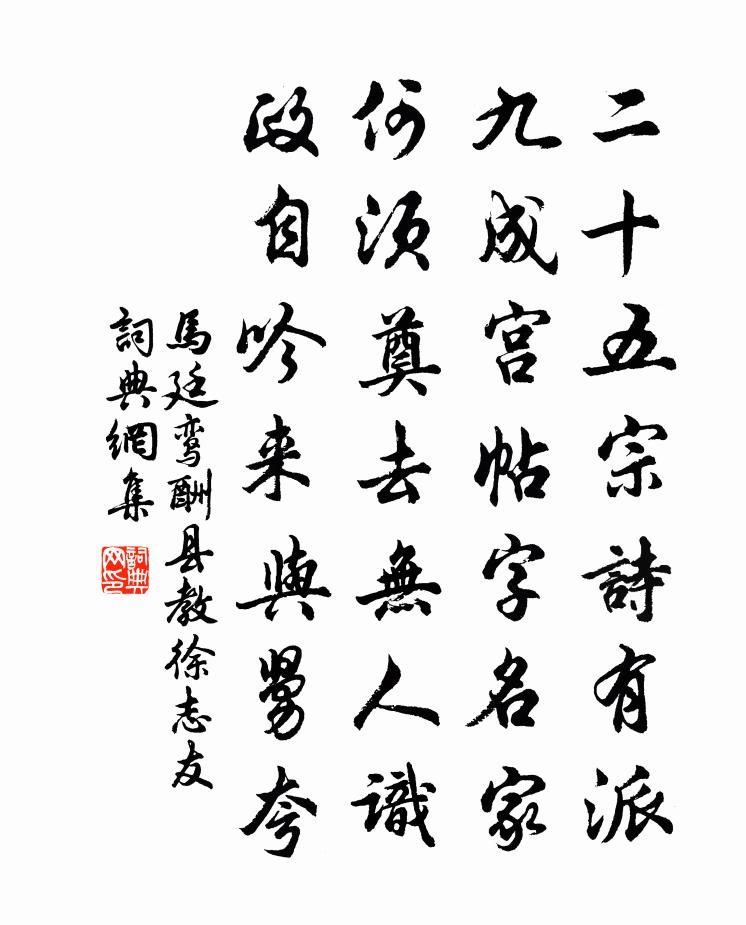 二十五宗詩有派
九成宫帖字名家
何須奠去無人識
政自吟来與舅夸
馬廷鸾酬县教徐志友
詞典網集
詞典网印